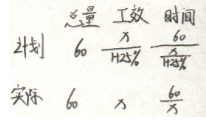 总量 工效 时间
计划 60 x/1+25% 60/(x/1+25%)
实际 60 x 60/x